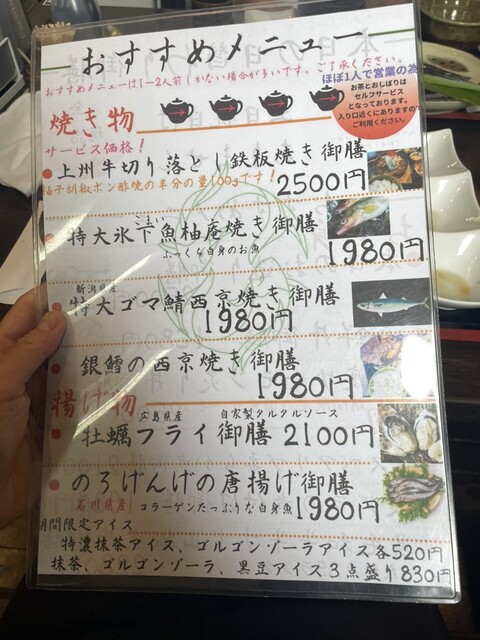 おすすめメニュー
おすすめメニューは1〜2人前しかない場合が多いです。ご了承ください。
ほぼ1人で営業の為
お茶とおしぼりは
セルフサービス
となっております。
入り口近くにありますので
ご利用ください。
焼き物
サービス価格!
上州牛切り落とし鉄板焼き御膳
柚子胡椒ポン酢焼の半分の量100gです!
2500円
こまい
特大氷下魚柚庵焼き御膳
ふっくら白身のお魚
1980円
新潟県産
特大ゴマ鯖西京焼き御膳
1980円
銀鱈の西京焼き御膳
1980円
揚げ物
広島県産 自家製タルタルソース
牡蠣フライ御膳 2100円
のろげんげの唐揚げ御膳
石川県産 コラーゲンたっぷりな白身魚 1980円
期間限定アイス
特濃抹茶アイス、ゴルゴンゾーラアイス各520円
抹茶、ゴルゴンゾーラ、黒豆アイス3点盛り 830円